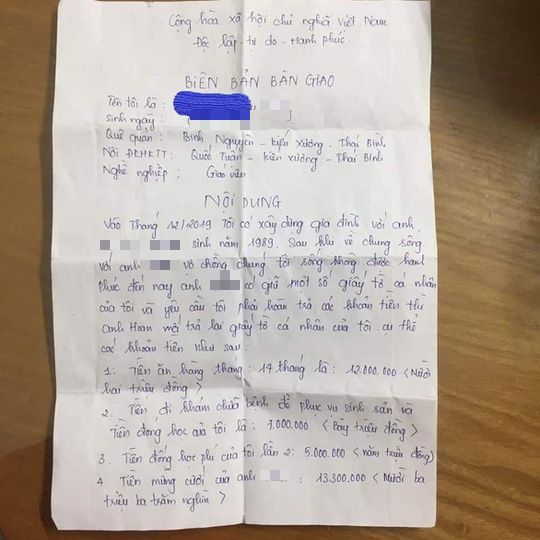 Cộng hòa xã hội chủ nghĩa Việt Nam
Độc lập - tự do - Hạnh phúc.
BIÊN BẢN BÀN GIAO
Tên tôi là :
sinh ngày :
Quê quán : Bình Nguyên - Kiến Xương - Thái Bình
Nơi ĐKHKTT: Quốc Tuấn - Kiến Xương - Thái Bình
Nghề nghiệp : Giáo viên
NỘI DUNG
Vào Tháng 12/2019 Tôi có xây dựng gia đình với anh
sinh năm 1989. Sau khi về chung sống
với anh vợ chồng chúng tôi sống không được hạnh
phúc đến nay anh có giữ một số giấy tờ cá nhân
của tôi và yêu cầu tôi phải hoàn trả các khoản tiền thì
anh Hoan mới trả lại giấy tờ cá nhân của tôi cụ thể
các khoản tiền như sau:
1: Tiền ăn hàng tháng: 14 tháng là: 12.000.000 < Mười
hai triệu đồng >
2. Tiền đi khám chữa bệnh để phục vụ sinh sản và
Tiền đóng học của tôi là: 7.000.000 < Bảy triệu đồng >
3. Tiền đóng học phí của tôi lần 2: 5.000.000 < năm triệu đồng)
4. Tiền mừng cưới của anh : 13.300.000 < Mười ba
triệu ba trăm nghìn >